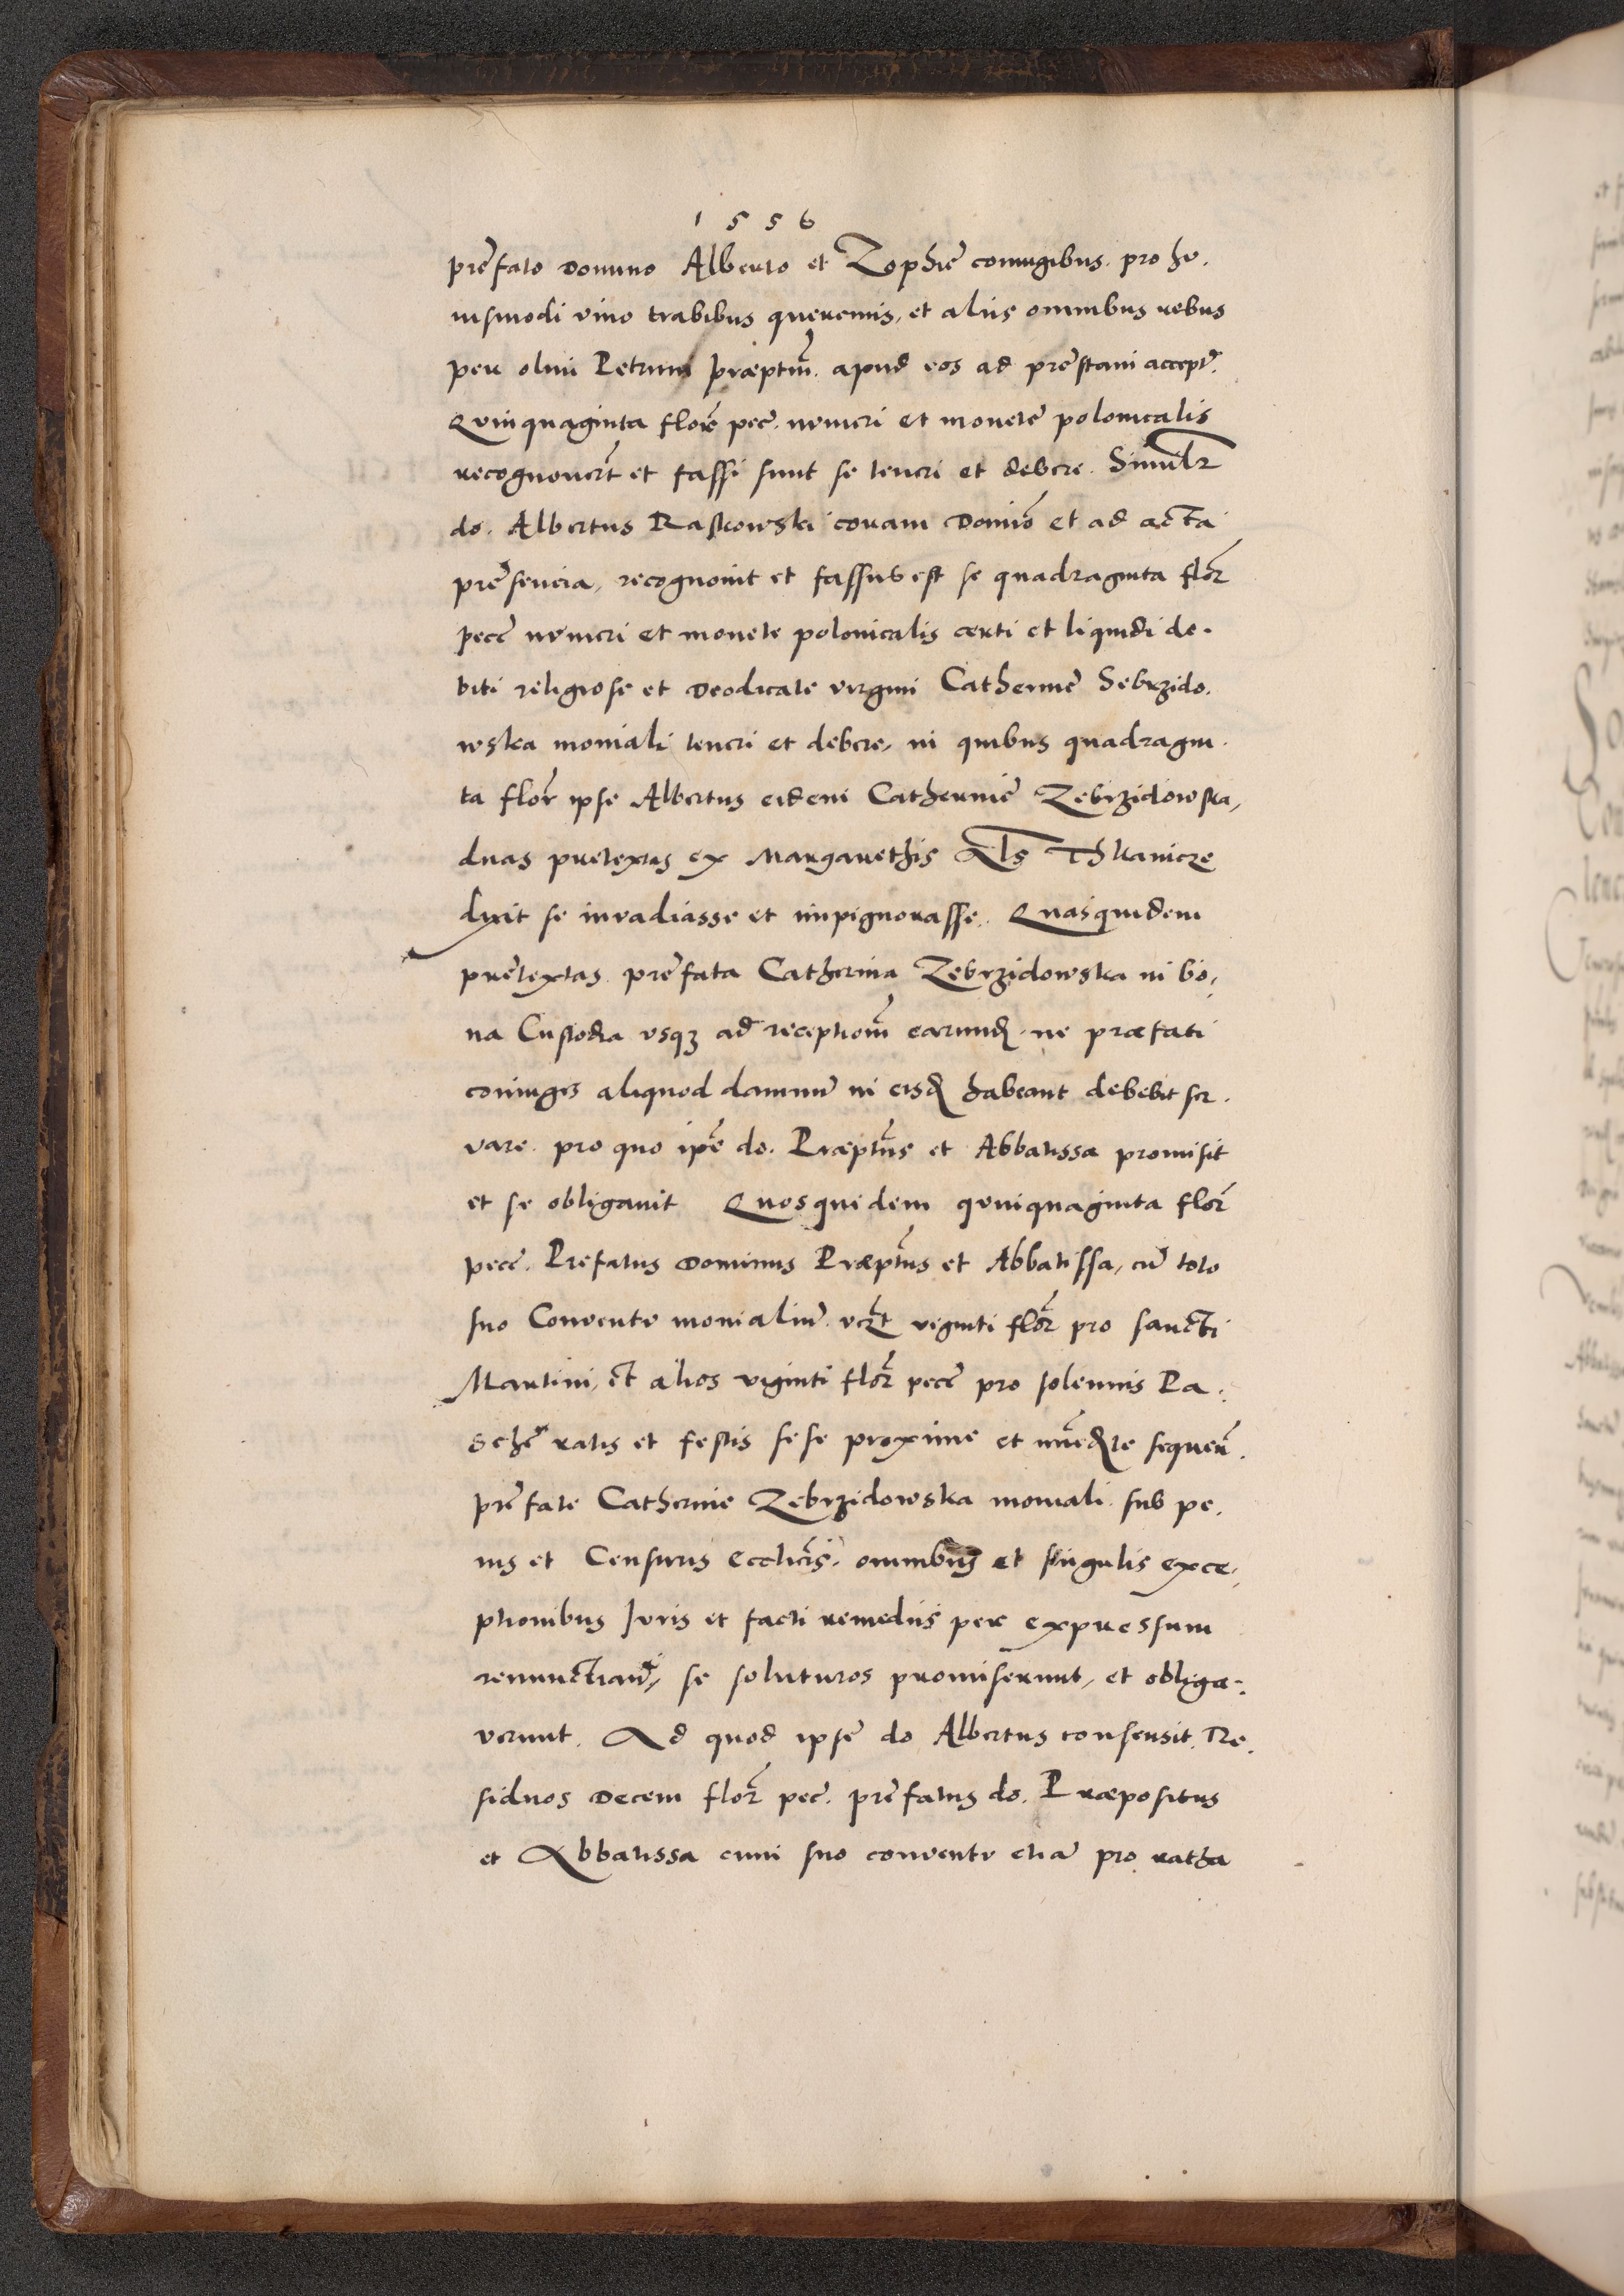 1556
prefato Domino Alberto et Zophie coniugibus. pro hu.
iusmodi vino trabibus quercinis, et aliis omnibus rebus
per olim Petrum præptum. apud eos ad prestam accept.
Quinquaginta floreñ pecc. numeri et monete polonicalis
recognouert et fassi sunt se teneri et debere. Similr
do. Albertus Raskowski coram Domiõ et ad acta
presencia, recognouit et fassus est se quadraginta flor
pecc numeri et monete polonicalis certi et liquidi de.
biti religiose et Deodicate virgini Catherine Sebrzido.
wska moniali teneri et debere, in quibus quadragin.
ta flor ipse Albertus eidem Catherine Zebrzidowska,
duas pretextas ex Margarethis Als Thkanicze
dixit se invadiasse et impignorasse. Quasquidem
pretextas. prefata Catherina Zebrzidowska in bo,
na Custodia usqz ad receptionem earund. ne præfati
coniuges aliquod damnum in eisd habeant debebit ser.
vare. pro quo ipse do. Præptus et Abbatissa promisit
et se obligauit Quosquidem quinquaginta flor
pecc. Prefatus Dominus Præptus et Abbatissa, cum toto
suo Conventu monialium. vert viginti flor pro sancti
Martini, et alios viginti flor pecc pro solennis Pa.
sche ratis et festis sese proxime et immediate sequen.
prefate Catherine Zebrzidowska moniali. sub pe.
nis et Censuris Ecclicis. omnibus et singulis exce,
ptionibus Juris et facti remediis per expressum
renunctian, se soluturos promiserunt, et obliga.
verunt. Ad quod ipse do Albertus consensit. Re.
siduos Decem flor pec. prefatus do. Præpositus
et Abbatissa cum suo conventu etiam pro ratha